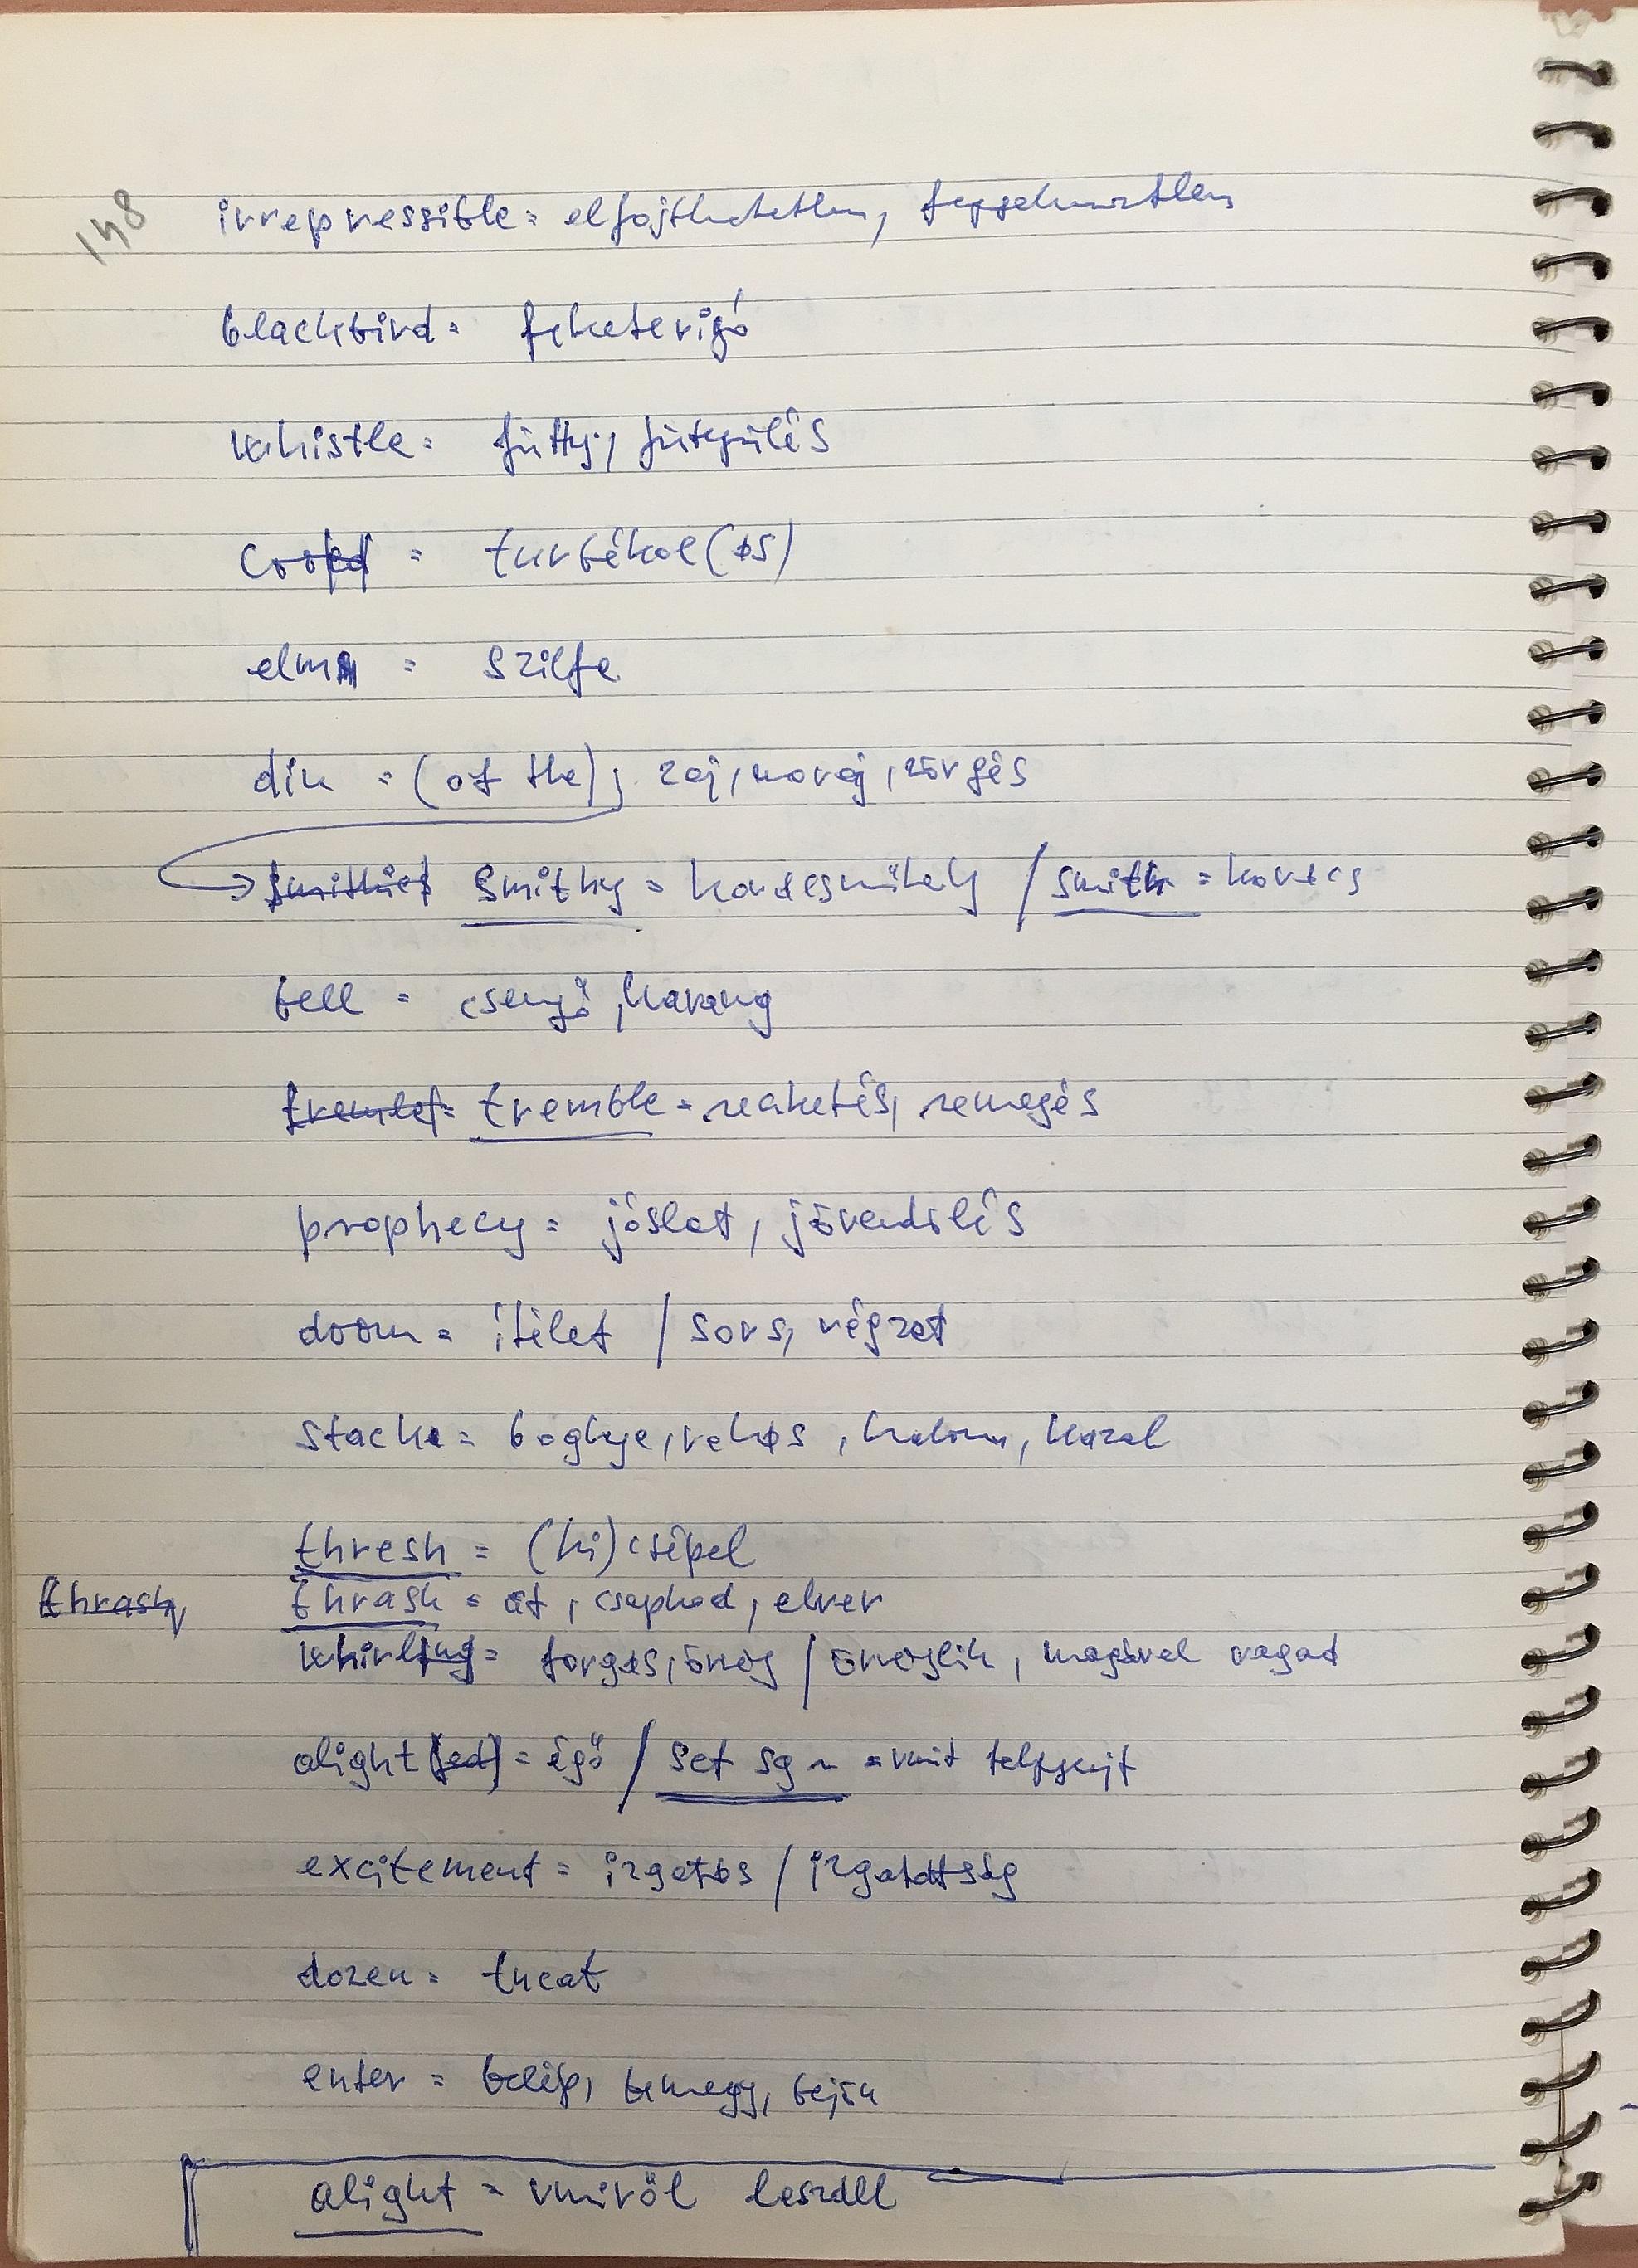 148 irrepressible = elfojthatatlan, fegyelmezetlen
blackbird = feketerigó
whistle = fütty, fütyülés
coo = turbékol(ás)
elm = szilfa
din = (of the); zaj, moraj, zörgés
smithies smithy = kovácsműhely / smith = kovács
bell = csengő, harang
tremble = reszketés, remegés
prophecy = jóslat, jövendölés
doom = ítélet / sors, végzet
stack = boglya, rakás, halom, kazal
thresh = (ki)csépel
thrash, thrash = üt, csapkod, elver
whirling = forgás, örvény / örvénylik, magával ragad
alight (ed) = égő / set sg ~ = vmit felgyújt
excitement = izgatás / izgatottság
dozen = tucat
enter = belép, bemegy, bejön
alight = vmiről leszáll